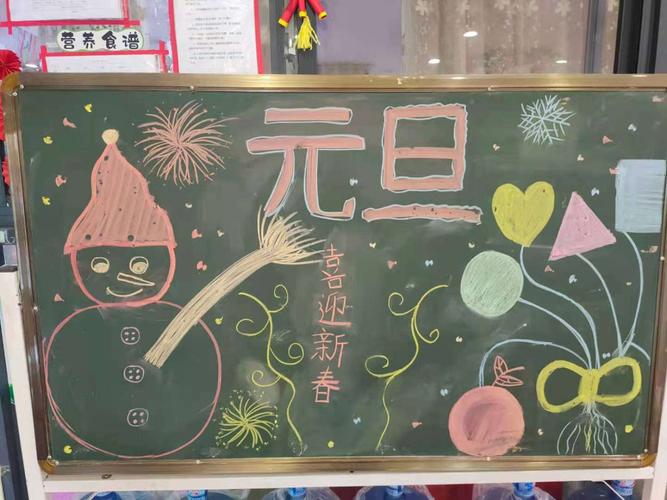 营养食谱
元旦
喜迎新春